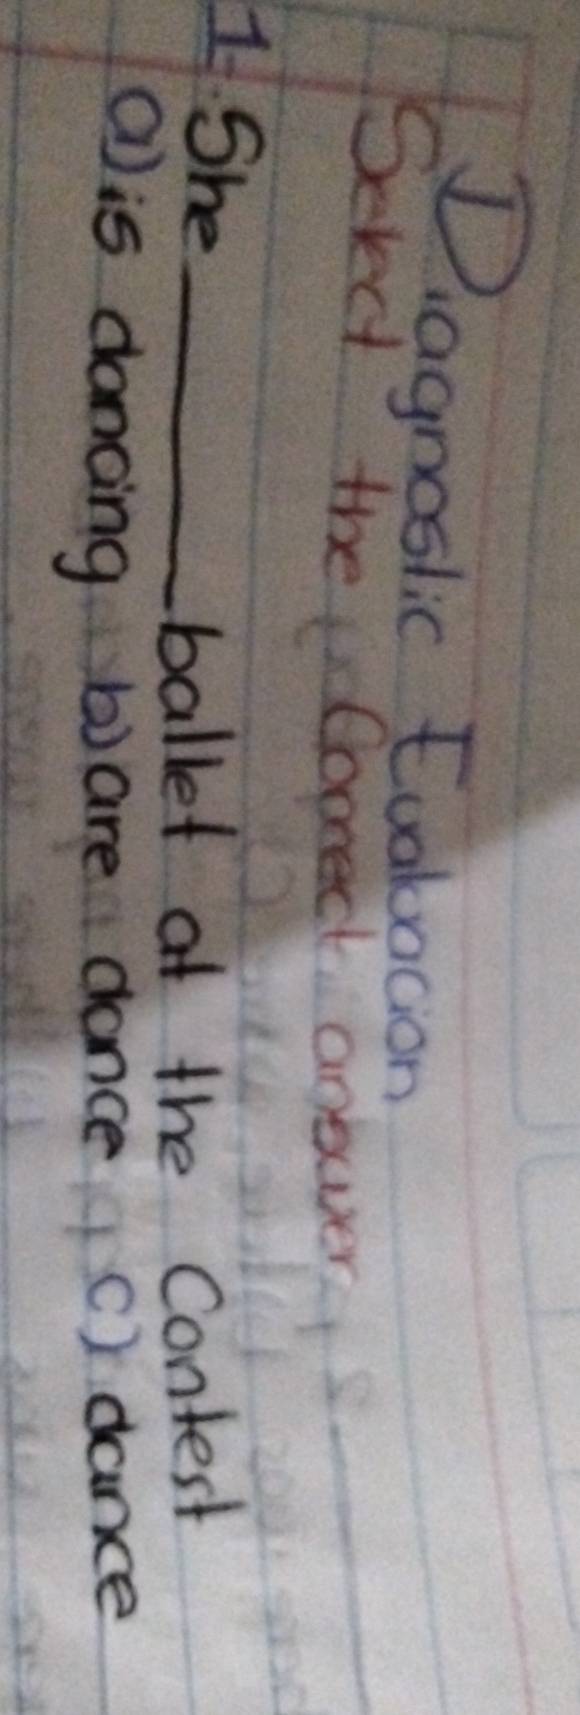 Diagnostic Evaluacion
Select the Correct answer
1. She ______ ballet at the Contest
a) is dancing b) are dance c) dance